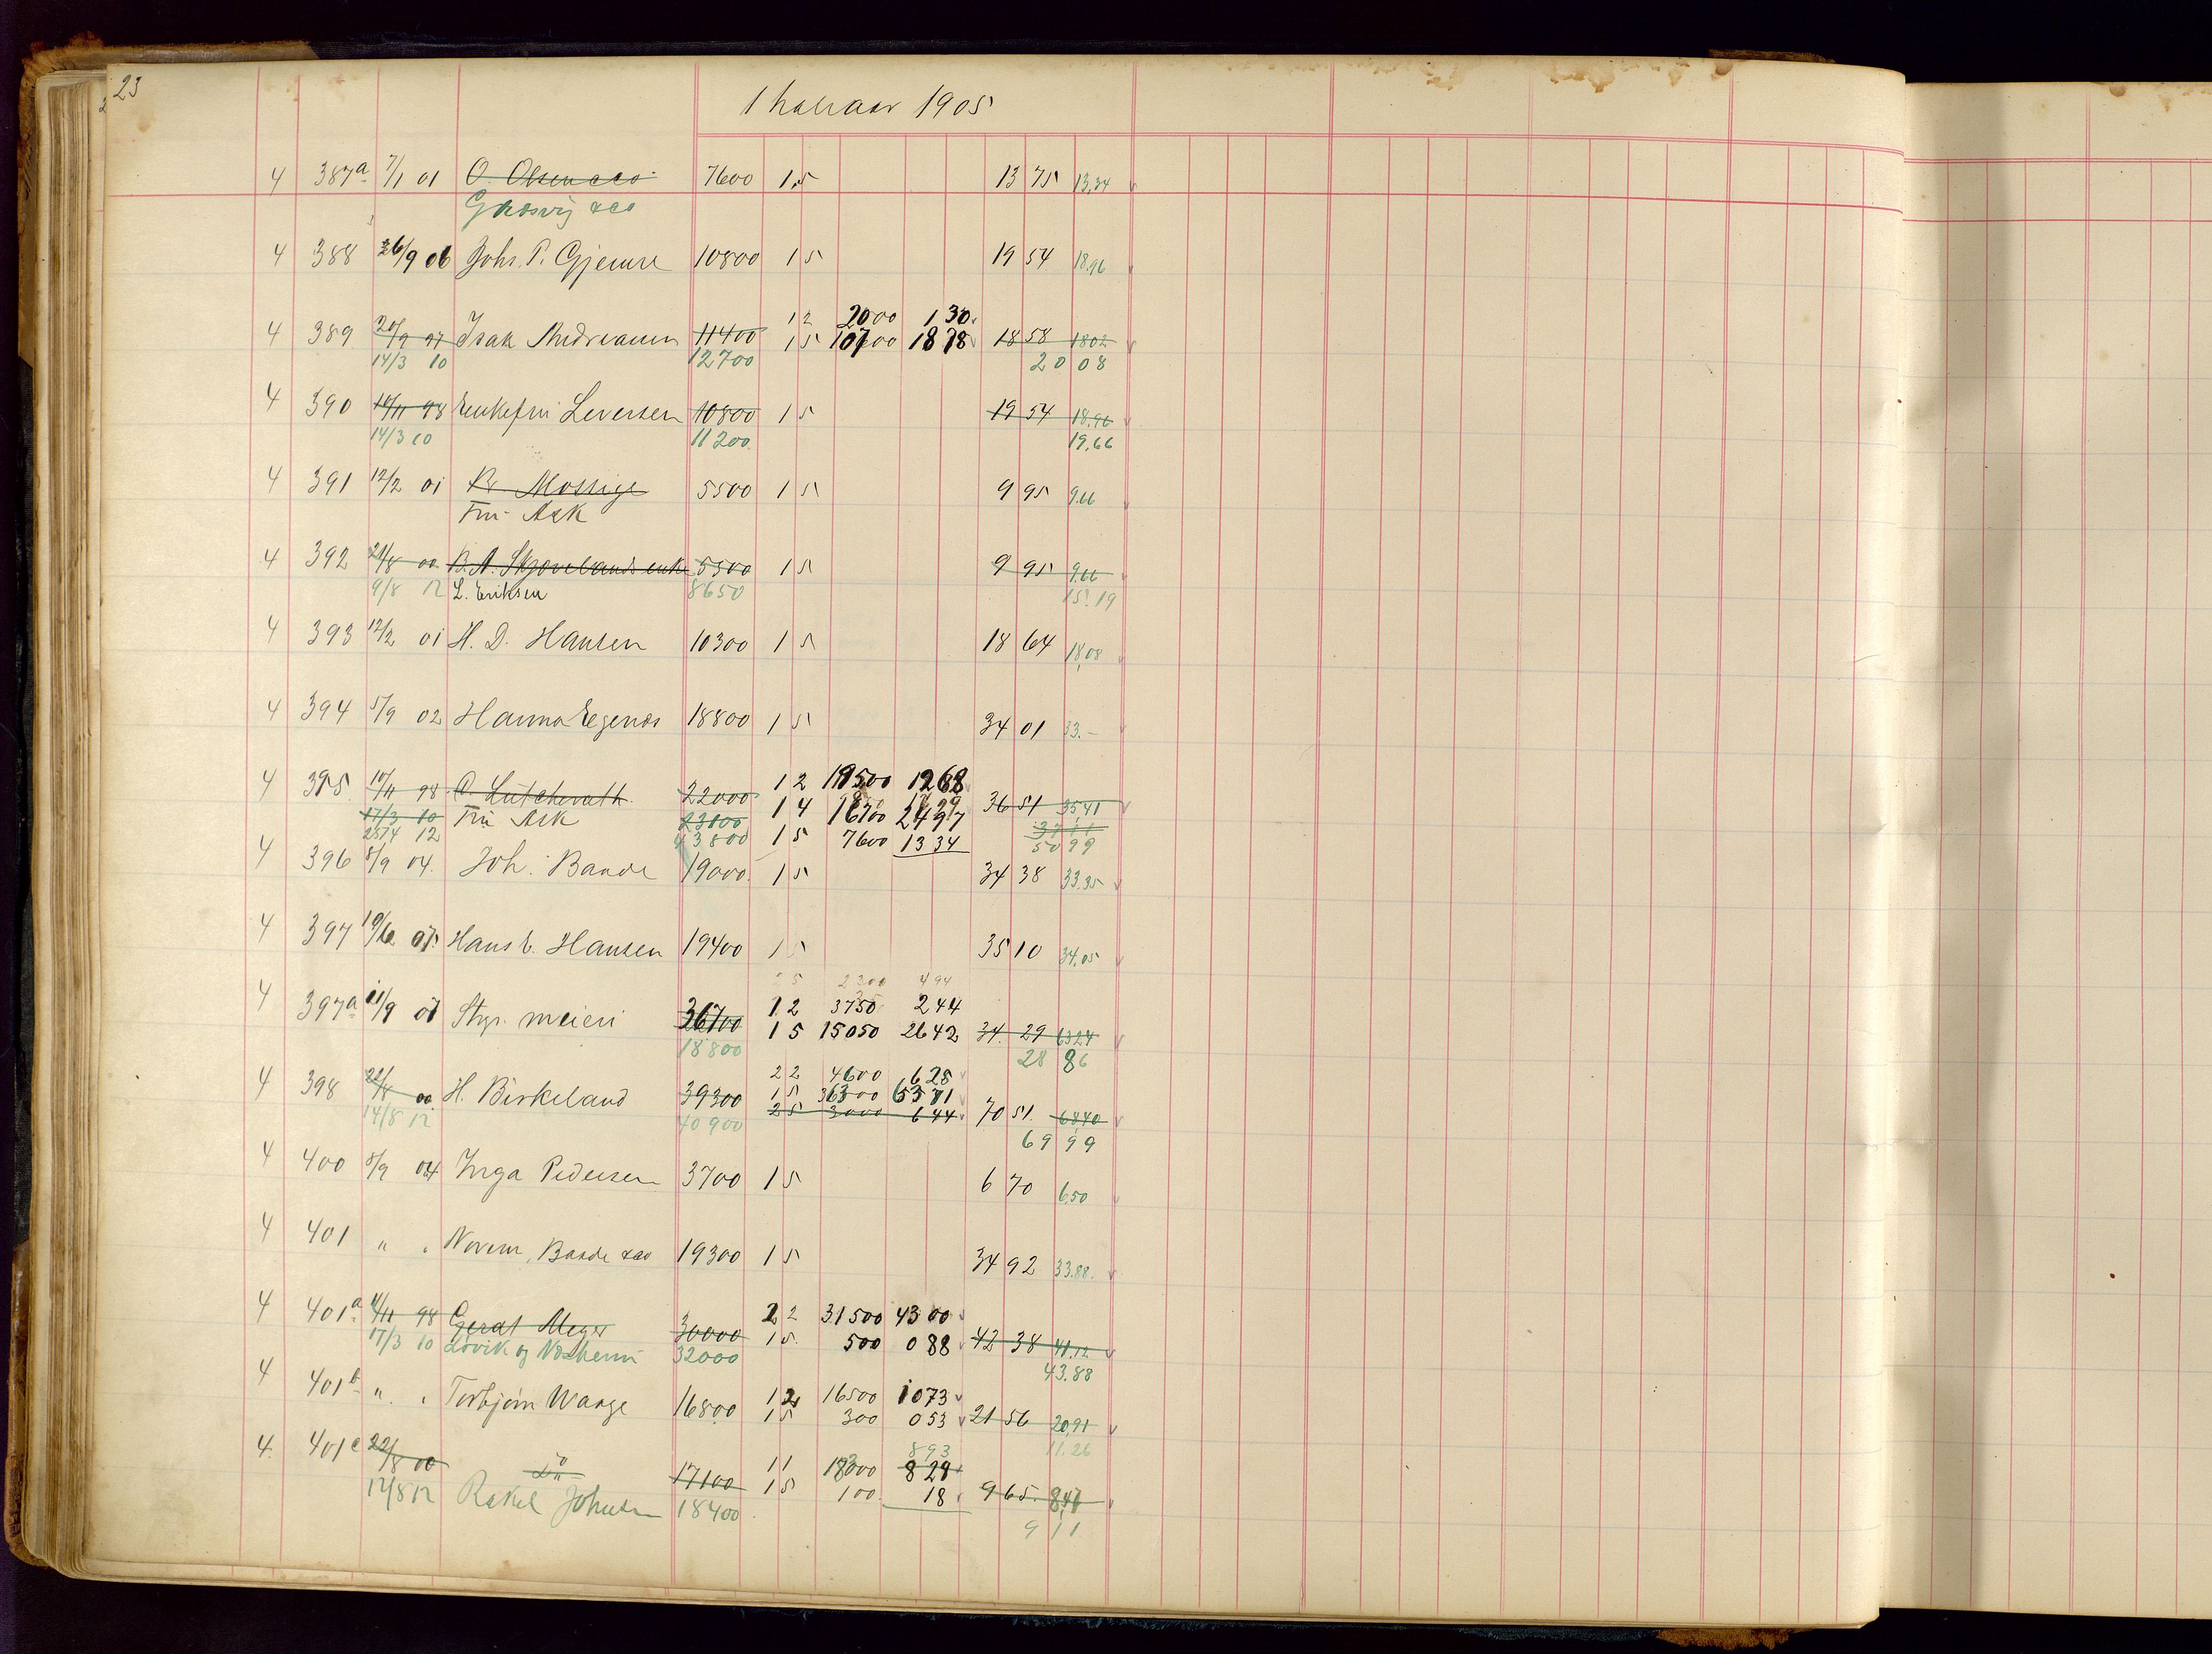 23
1 halvaar 1905
4 387a 7/1 01 O. Olsen & Co 7600 1 5 13 75 13,34
& Co
4 388 26/9 06 Johs. P. Gjemre 10800 1 5 19 54 18,96
1 2 2000 1 30
4 389 20/9 97 Isak Andreasen 11400 1 5 10700 18 78 18 58 18 02
14/3 10 12700 20 08
4 390 14/11 98 Enkefru Leversen 10800 1 5 19 54 18,96
14/3 10 11200 19,66
4 391 12/2 01 Mossige 5500 1 5 9 95 9,66
Fru Ask
4 392 21/8 00 B. A. Skjævelands enke 5500 1 5 9 95 9,66
9/8 12 L. Eriksen 8650 15,19
4 393 12/2 01 H. D. Hansen 10300 1 5 18 64 18,08
4 394 5/9 02 Hanna Egenæs 18800 1 5 34 01 33.–
4 395 98 22000 1 2 19500 12 68
17/3 10 Fru Ask 23100 1 4 16700 24 97 36 51 35,41
25/4 12 43800 1 5 7600 13 34 50 99
4 396 5/9 04 Joh. Bande 19000 1 5 34 38 33,35
4 397 19/6 05 Hans E. Hansen 19400 1 5 35 10 34,05
2 5 2300 4 94
4 397a 11/9 07 Stgr. meieri 36700 1 2 3750 2 44
1 5 15050 26 42 34 29 63 24
18800 28 86
2 2 4600 6 28
4 398 22/8 00 H. Birkeland 39300 1 5 36300 63 71
14/8 12 40900 2 5 3000 6 44 70 51 68 40
69 99
4 400 5/9 04 Inga Pedersen 3700 1 5 6 70 6,50
4 401 " " Bande & Co 19300 1 5 34 92 33.88
4 401a 11/11 98 Gerdt Meyer 30000 2 2 31500 43 00
17/3 10 Løvik og 32000 1 5 500 0 88 42 38 41,12
43.88
4 401b " " Torbjørn Waage 16800 1 2 16500 10 73
1 5 300 0 53 21 56 20,91
8 93 11.26
4 401c 22/8 00 Do 17100 1 1 18000 8 29
12/8 12 Rakel Johnsen 18400 1 5 100 18 9 65 8,47
9 11